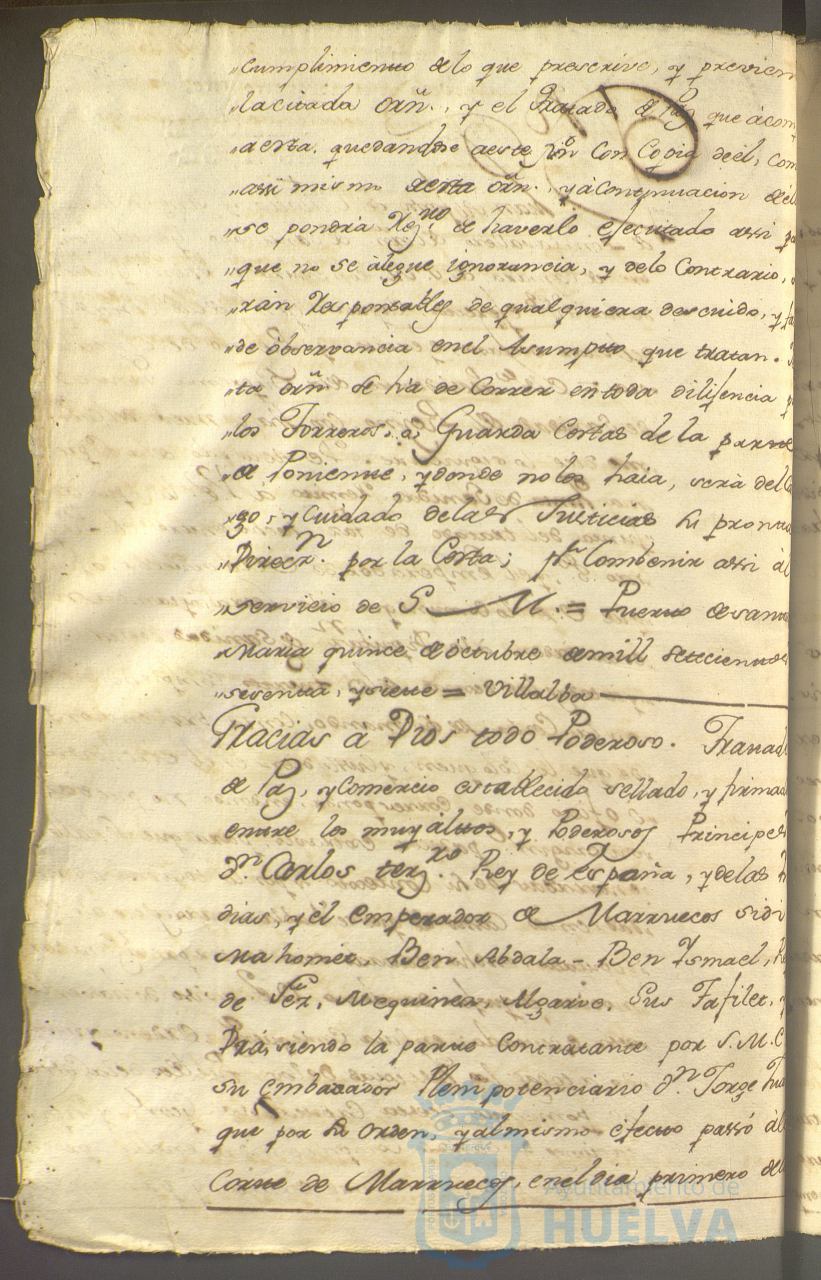 "cumplimiento de lo que prescrive, y previen
"la citada orñ., y el Tratado de Paz que àcom
"a esta. quedandose a este fin Con Copia de el, com
"assi mismo de esta orñ., y à continuacion de el
"se pondrà de haverlo efecutado assi pa
"que no se àlegue ignorancia, y delo Contrario, s
"ràn Responsables de qualquiera descuido, y fa
"de òbservancia enel Asumpto que tratan.
"ta orñ se ha de Correr en toda dilifencia p
"los Torreros, a, Guarda Costas de la parte
"de Poniente, y donde no los haia, serà del Ca
"go, y Cuidado delas Justicias su pronta
"Direcn. por la Costa; pr Combenir assi àl
"servicio de S M. = Puerto de Santa
"Maria quince de òctubre demill setecientos
"sesenta, y siete = Villalba
Gracias à Dios todo Poderoso. Tratad
de Paz, y Comercio establecido sellado, y firmad
entre los muy àltos, y Poderosos Principes
dn. Carlos terzro. Rey de España, y delas Yn
dias, y èl emperador de Marruecos sidi
Mahomet, Ben Abdala - Ben Ysmael, Re
de Féz, Mequinez, Algarve, Sus Tafilet, y
Drà, siendo la parte Contratante por S. M. C
su embaxador Plenipotenciario dn. Jorge Jua
que por su orden, y al mismo èfecto passó à la
Corte de Marruecos, en el dia primero de
Ayuntamiento de
HUELVA